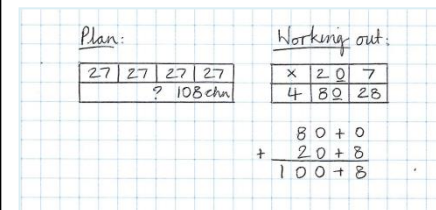 Plan:
27 27 27 27
? 108 chn
Working out:
× 20 7
4 80 28
80+0
+ 20+8
100+8